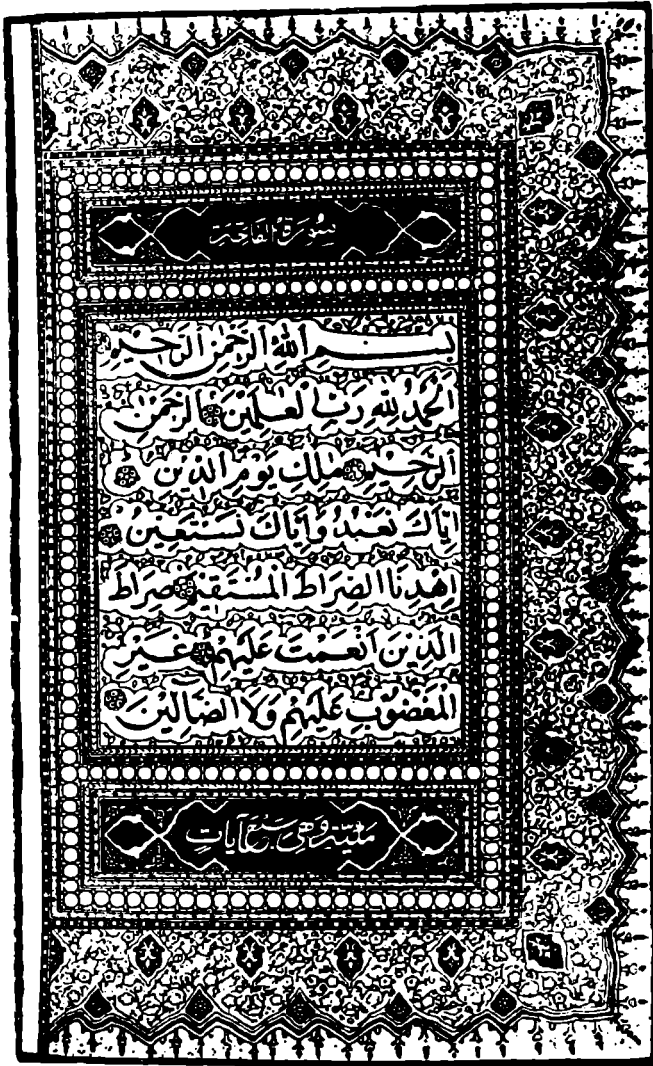 سُورَةُ الْفَاتِحَة
بِسْمِ اللَّهِ الرَّحْمَنِ الرَّحِيمِ
الْحَمْدُ لِلَّهِ رَبِّ الْعَلَمِينَ الرَّحْمَنِ
الرَّحِيمِ مَلِكِ يَوْمِ الدِّينِ
إِيَّاكَ نَعْبُدُ وَإِيَّاكَ نَسْتَعِينُ
اِهْدِنَا الصِّرَاطَ الْمُسْتَقِيمَ صِرَاطَ
الَّذِينَ أَنْعَمْتَ عَلَيْهِمْ غَيْرِ
الْمَغْضُوبِ عَلَيْهِمْ وَلَا الضَّالِّينَ
مكية وهي سبع آيات